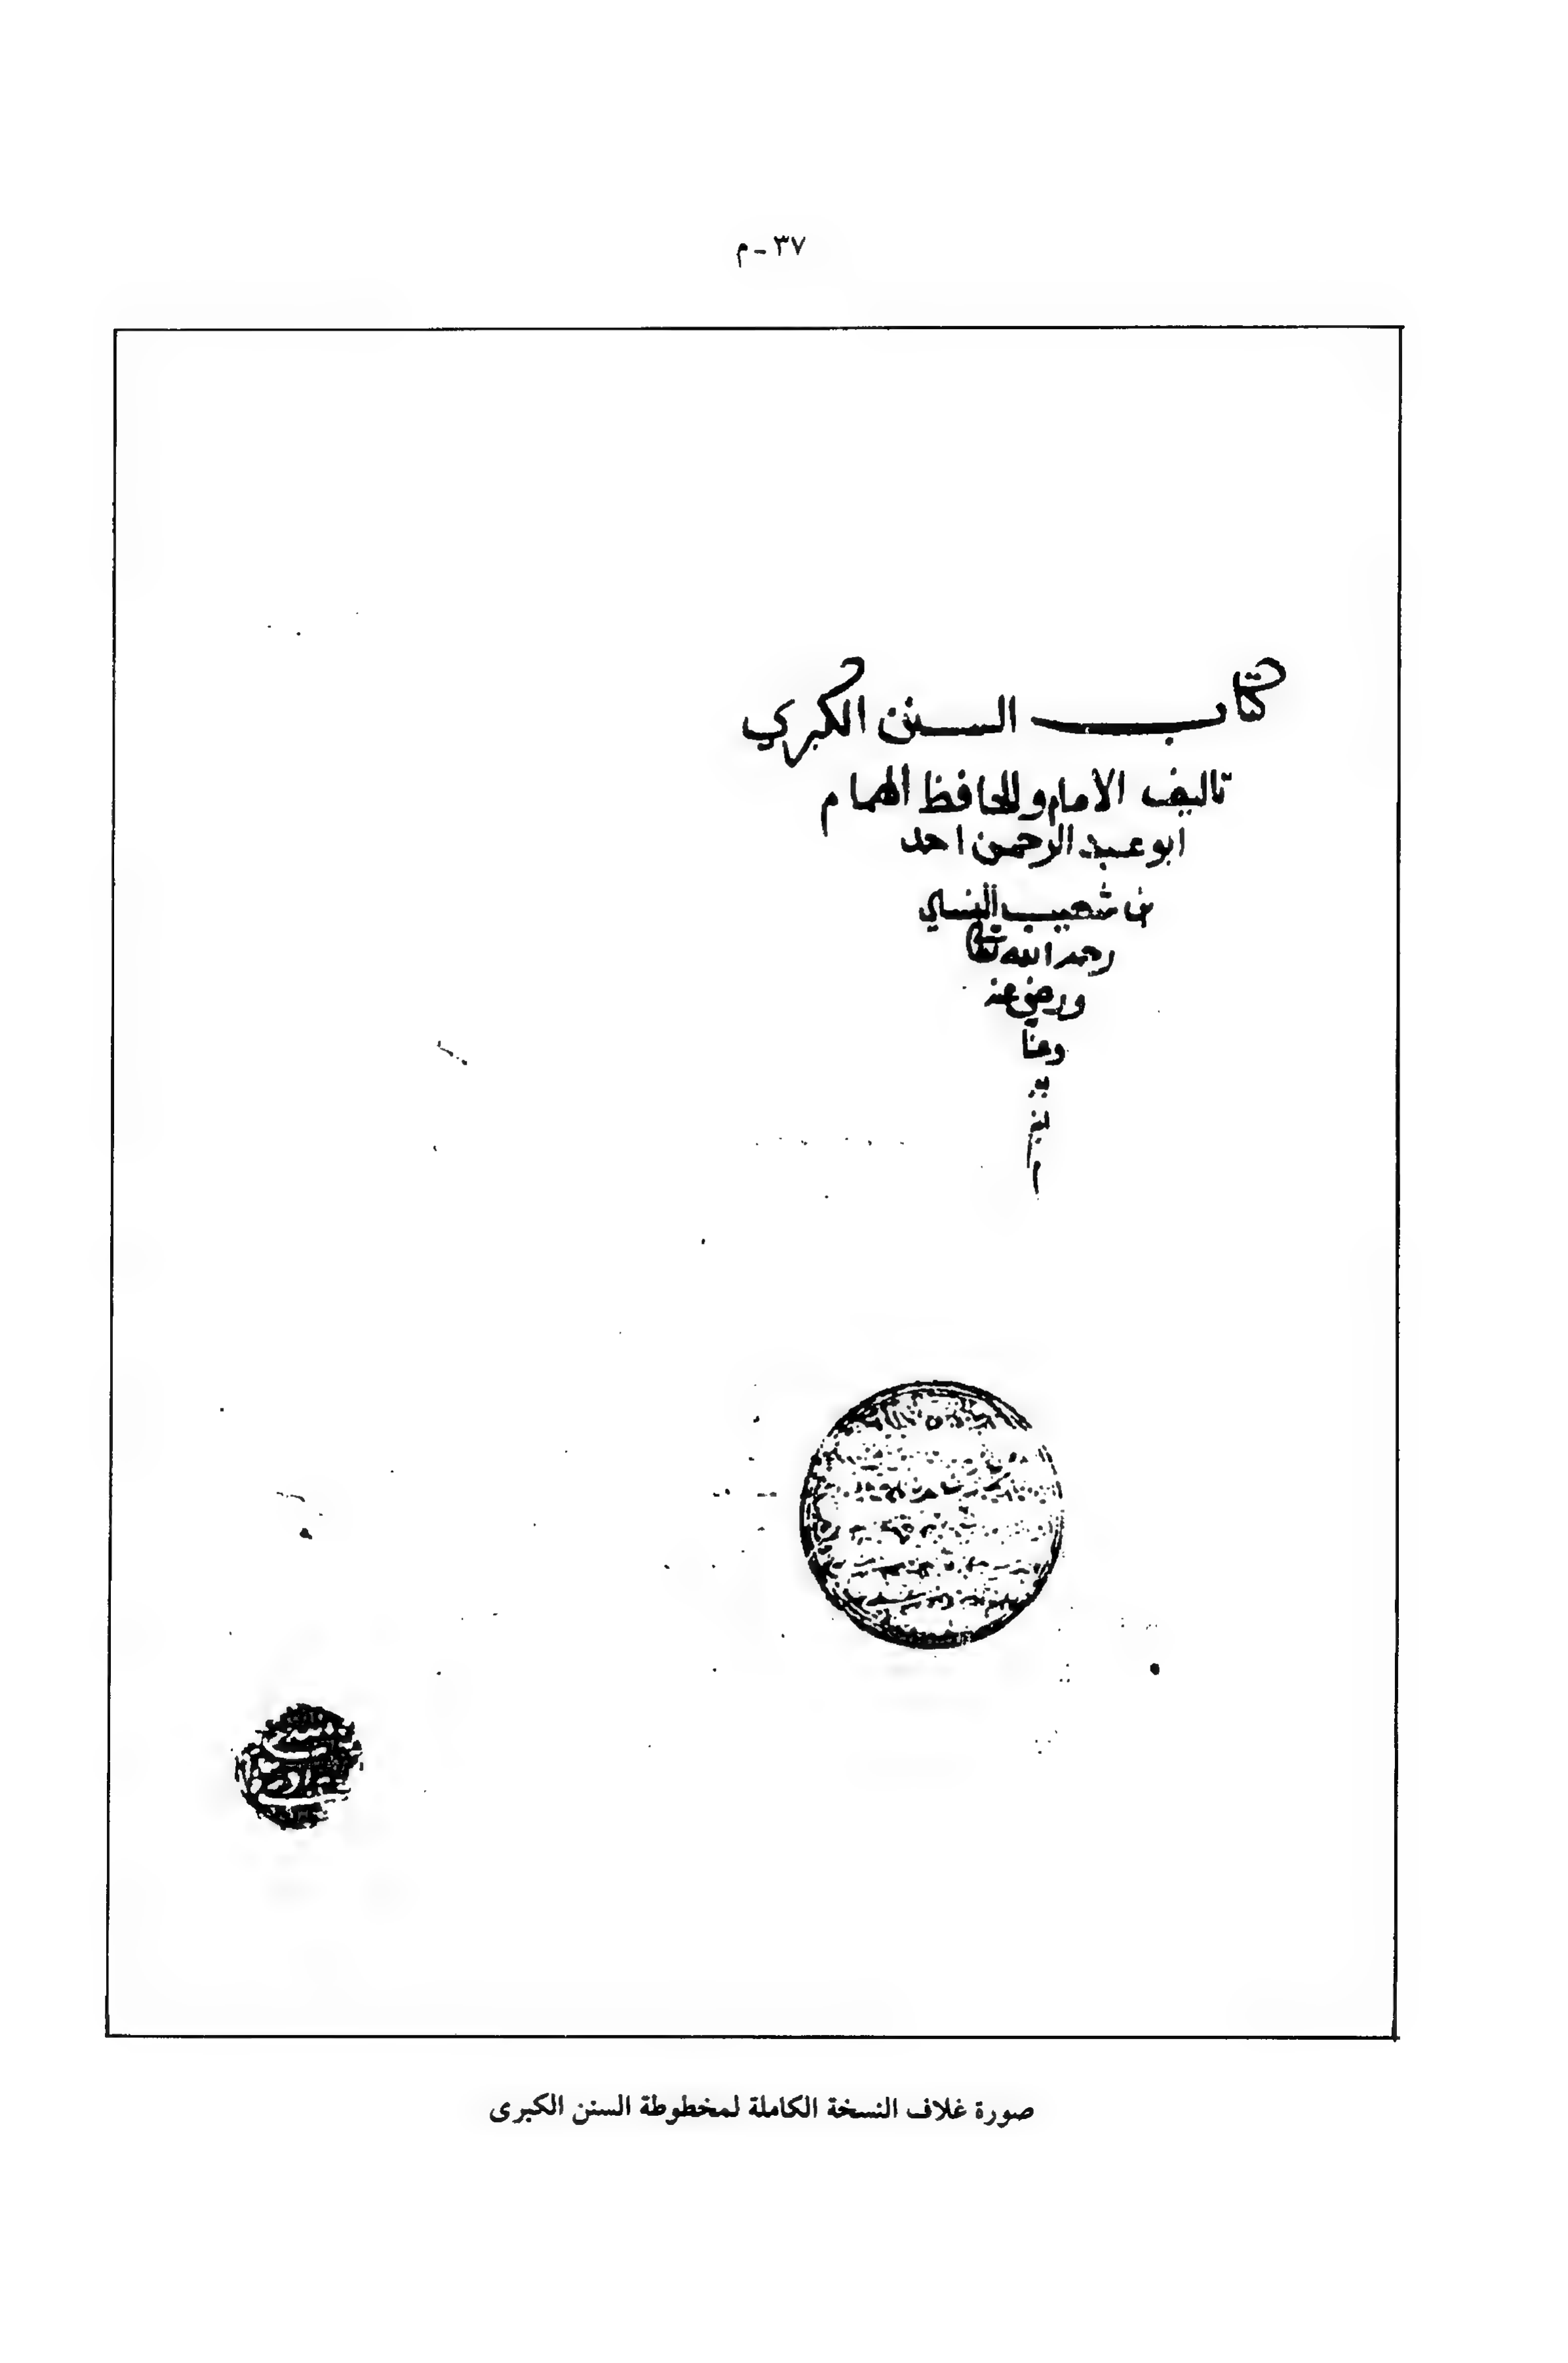 ٣٧ - م
كتاب السنن الكبري
تاليف الامام والحافظ الهمام
ابو عبد الرحمن احمد
بن شعيب النساي
رحمه الله تعالى
ورضي عنه
وعنا
به
م
صورة غلاف النسخة الكاملة لمخطوطة السنن الكبرى